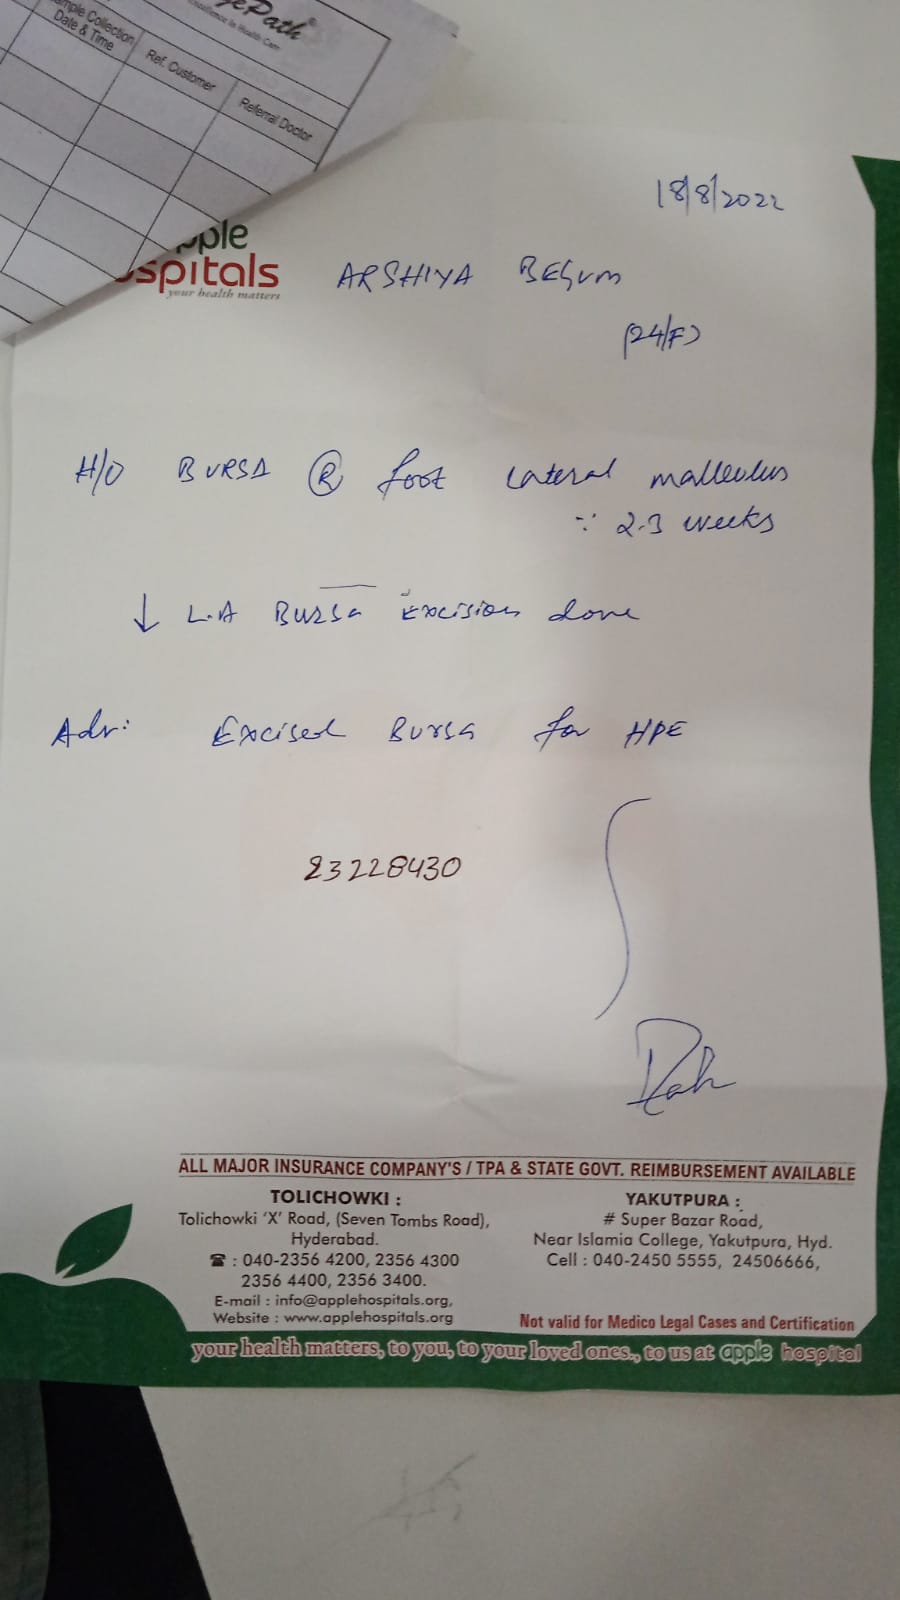 Sample Collection
Date & Time
Ref. Customer
Referral Doctor
18/8/2022
spitals
your health matters
ARSHIYA BEGUM
(24/F)
H/O BURSA Ⓡ foot lateral malleolus
∵ 2-3 weeks
↓ L.A Bursa Excision done
Adv: Excised Bursa for HPE
23228430
ALL MAJOR INSURANCE COMPANY'S / TPA & STATE GOVT. REIMBURSEMENT AVAILABLE
TOLICHOWKI :
Tolichowki 'X' Road, (Seven Tombs Road),
Hyderabad.
☎ : 040-2356 4200, 2356 4300
2356 4400, 2356 3400.
E-mail : info@applehospitals.org,
Website : www.applehospitals.org
YAKUTPURA :
# Super Bazar Road,
Near Islamia College, Yakutpura, Hyd.
Cell : 040-2450 5555, 24506666,
Not valid for Medico Legal Cases and Certification
your health matters, to you, to your loved ones., to us at apple hospital